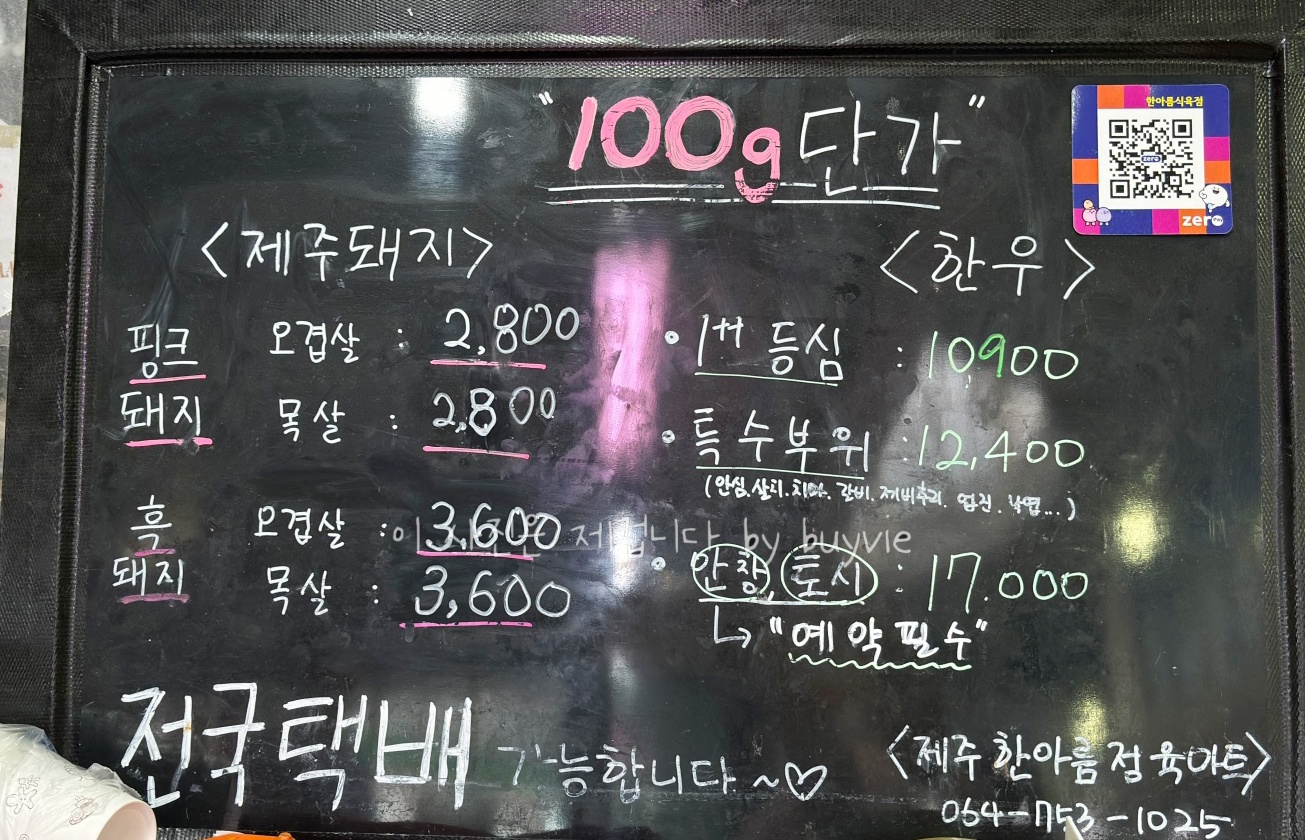 "100g단가"
한아름식육점
zero
zero Pay
<제주돼지>
핑크돼지
오겹살 : 2,800
목살 : 2,800
흑돼지
오겹살 : 3,600
목살 : 3,600
<한우>
• 1++ 등심 : 10900
• 특수부위 : 12,400
(안심.살치.치마.갈비.제비추리.업진.낙엽...)
• 안창, 토시 : 17.000
↳ "예약필수"
이 사진은 제겁니다 by buyvie
전국택배 가능합니다~♡
<제주한아름정육마트>
064-753-1025